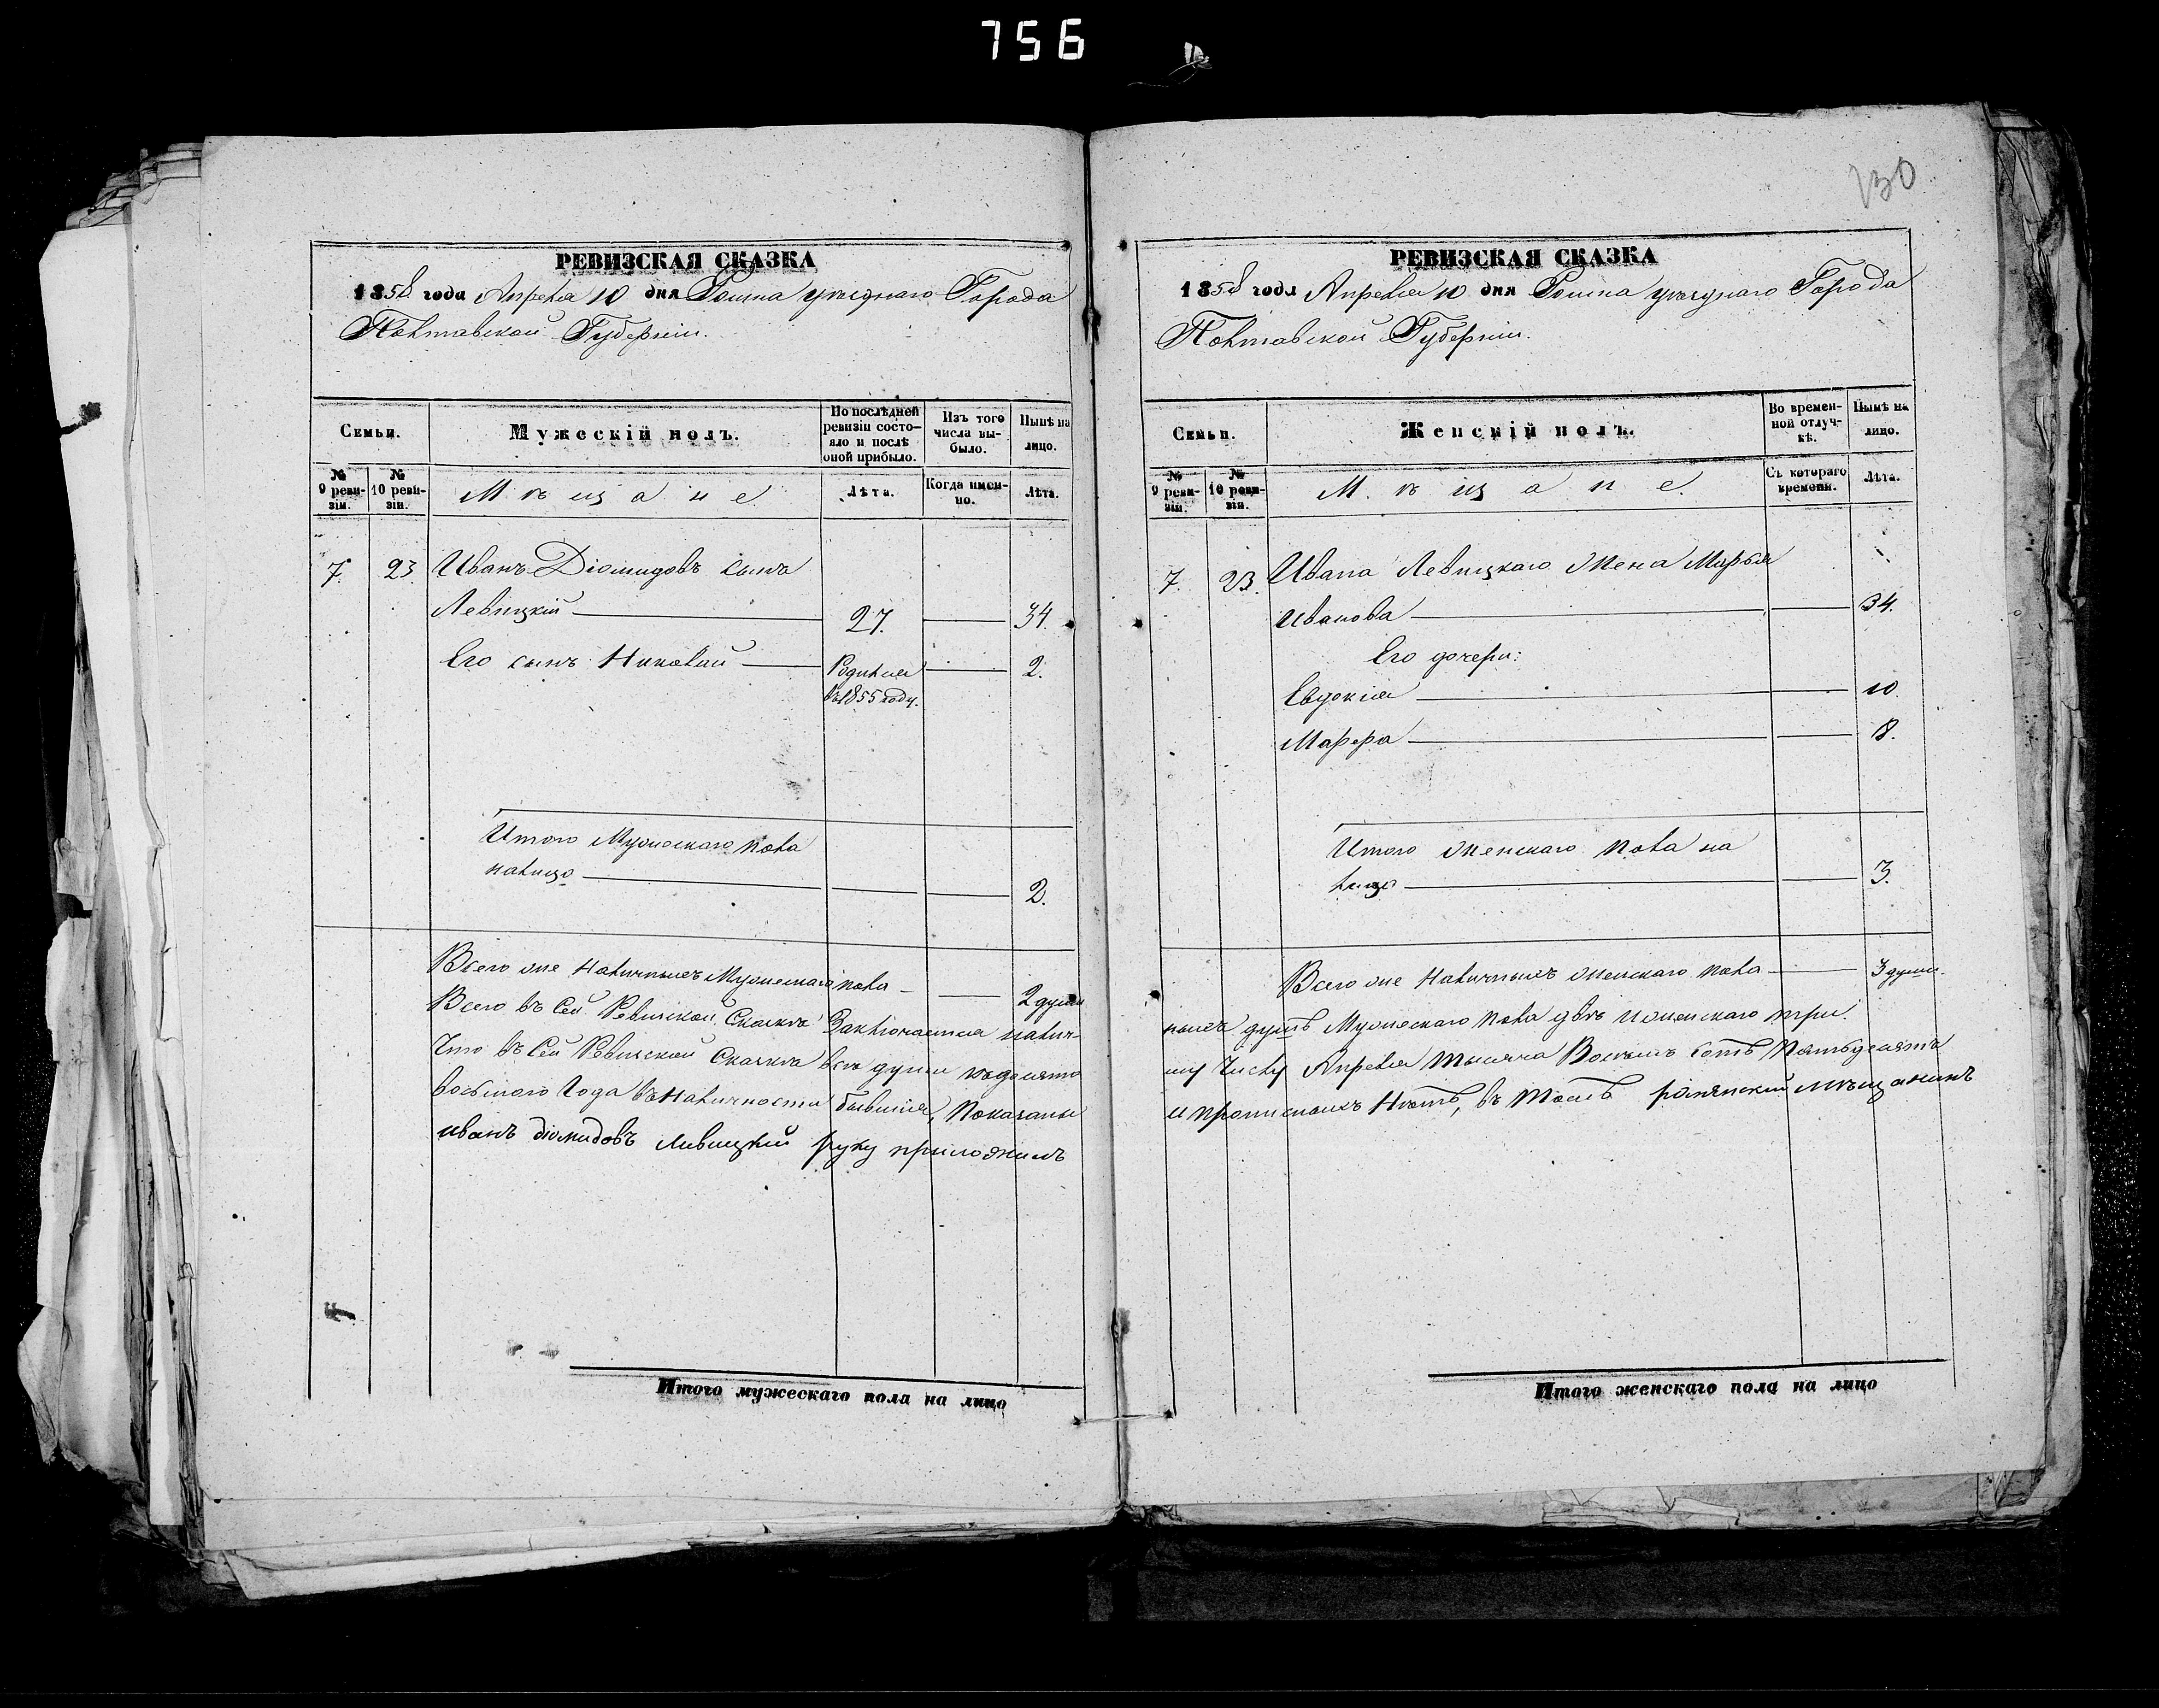 756
130
РЕВИЗСКАЯ СКАЗКА
1858 года Апреля 10 дня Ромна уѣзднаго Города
Полтавской Губерніи.
Семьи.
Мужескій полъ.
По послѣдней ревизіи состояло и послѣ оной прибыло.
Изъ того числа выбыло.
Нынѣ на лицо.
№ 9 ревизіи.
№ 10 ревизіи.
Мѣщане.
Лѣта.
Когда именно.
Лѣта.
7. 23. Иванъ Діомидовъ сынъ
Левицкій 27. 34.
Его сынъ Николай Родился 2.
въ 1855 году.
Итого Мужескаго пола
налицо 2.
Всего же Наличныхъ Мужескаго пола 2 души
Всего въ Сей Ревизской Сказкѣ Заключается налич-
Что въ Сей Ревизской Сказкѣ всѣ души къ десято
восьмого Года въ Наличности бывшія, Показаны
иванъ діомидовъ Ливицкий руку приложилъ
Итого мужескаго пола на лицо
РЕВИЗСКАЯ СКАЗКА
1858 года Апреля 10 дня Ромна уѣзднаго Города
Полтавской Губерніи.
Семьи.
Женскій полъ.
Во временной отлучкѣ.
Нынѣ на лицо.
№ 9 ревизіи.
№ 10 ревизіи.
Мѣщане.
Съ котораго времени.
Лѣта.
7. 23. Ивана Левицкаго Жена Марья
Иванова 34.
Его дочери:
Евдокія 10
Марфа 8.
Итого женскаго пола на
лицо 3.
Всего же Наличныхъ женскаго пола 3 души.
ныхъ душъ Мужескаго пола двѣ и женскаго три.
му Числу Апреля Тысяча Восемь сотъ Пятьдесятъ
и прописныхъ Нѣтъ, въ томъ роменский мѣщанинъ
Итого женскаго пола на лицо